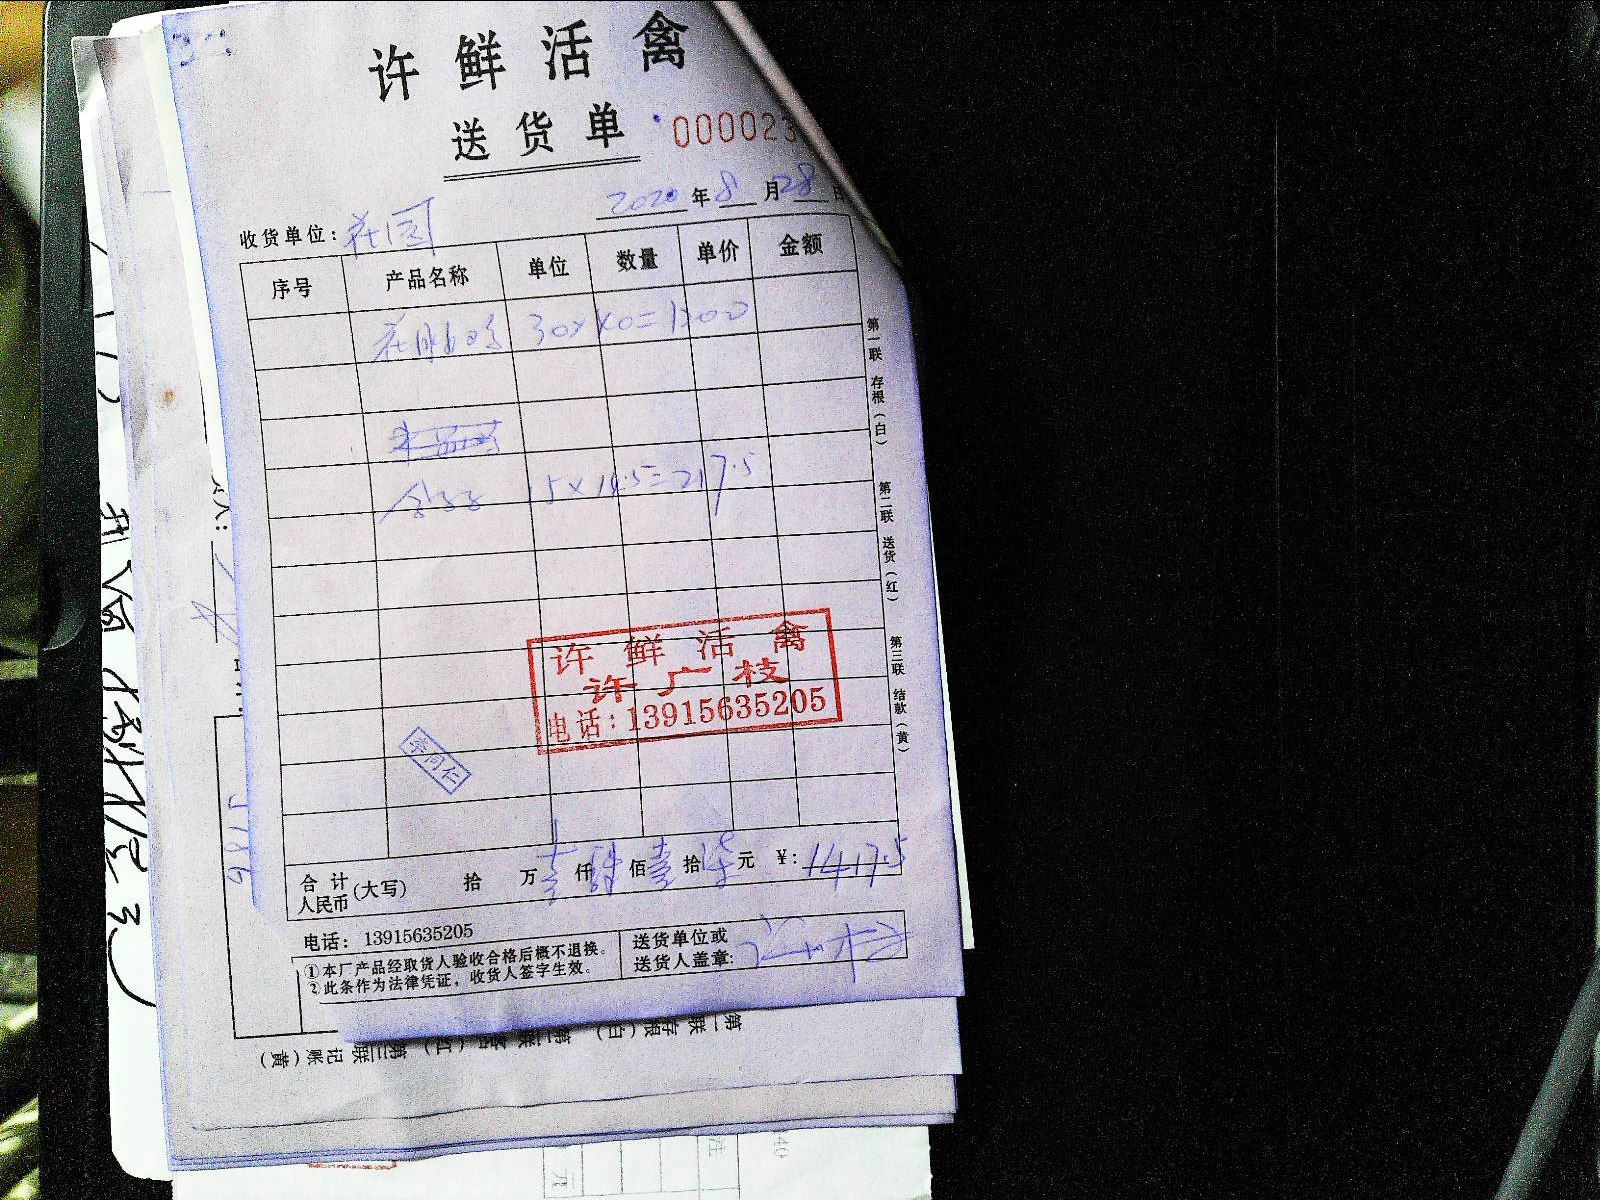 许鲜活禽
送货单 000023
2020年8月28日
收货单位：花园
序号 产品名称 单位 数量 单价 金额
30×40=1200
15×14.5=217.5
第一联 存根（白）
第二联 送货（红）
第三联 结款（黄）
许鲜活禽
许广枝
电话：13915635205
李同仁
合计
人民币(大写) 拾 万 壹 仟 肆 佰 壹 拾 柒 元 ¥：1417.5
电话：13915635205
①本厂产品经取货人验收合格后概不退换。
②此条作为法律凭证，收货人签字生效。
送货单位或
送货人盖章：
第一联 存根（白） 第二联 客户（红） 第三联 记账（黄）